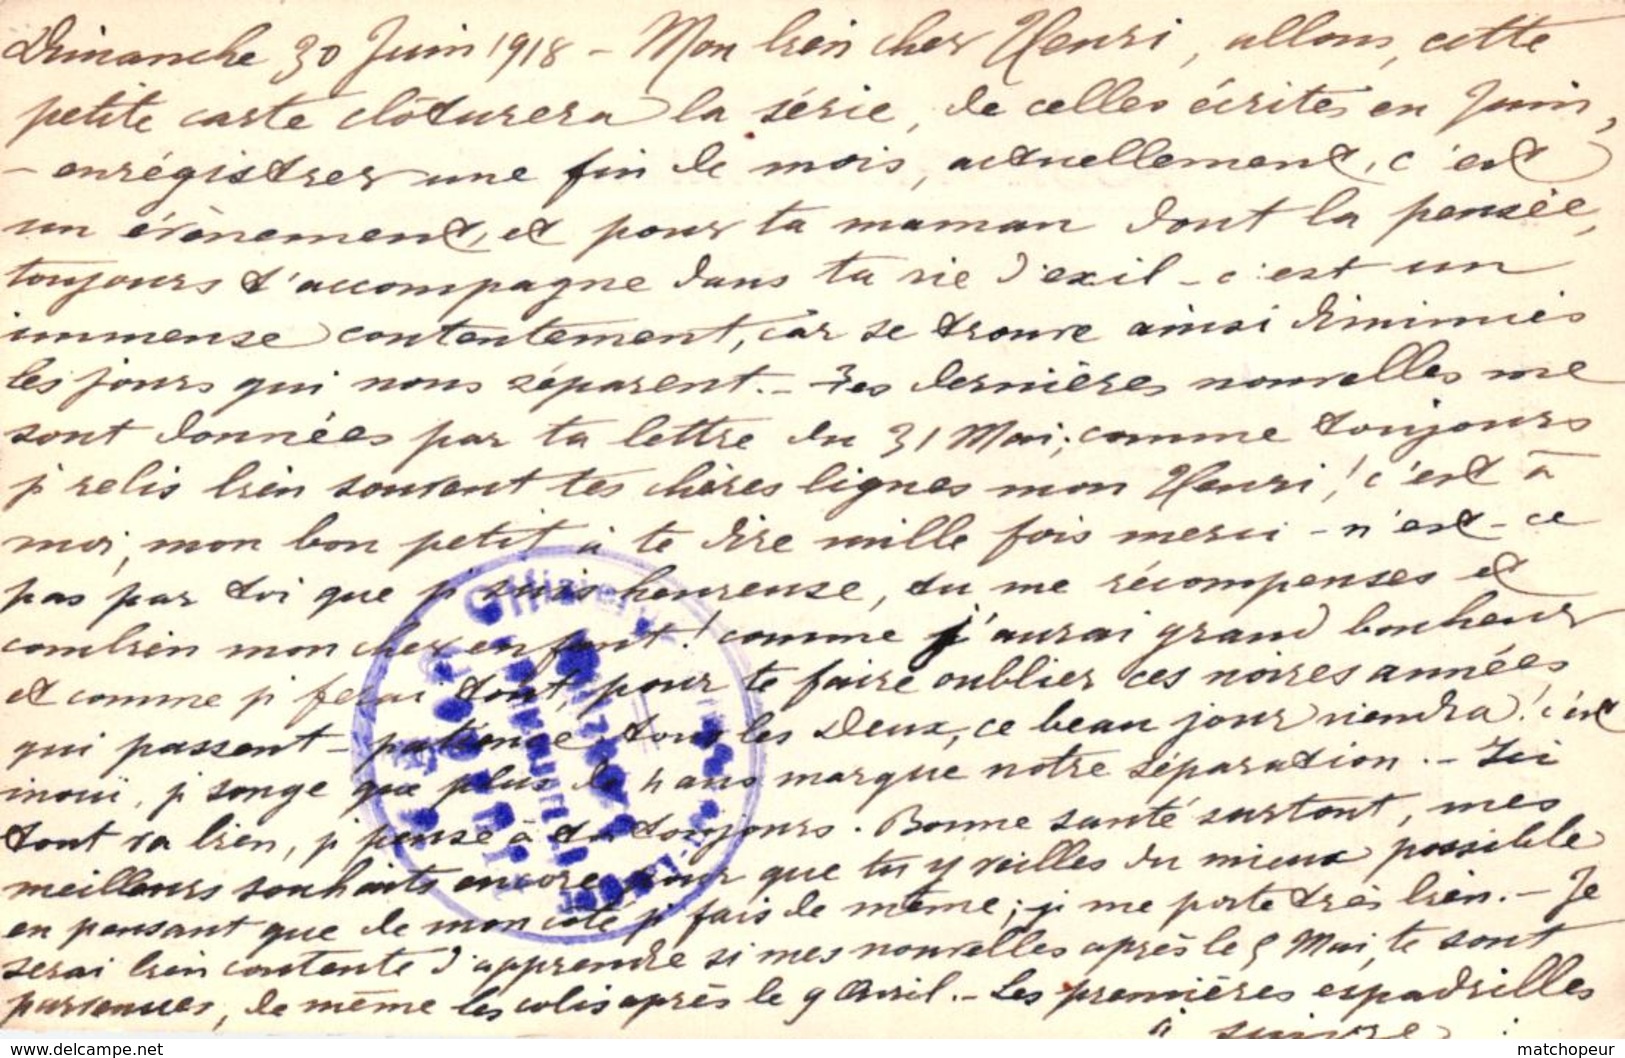 Dimanche 30 Juin 1918 - Mon bien cher Henri, allons, cette
petite carte clôturera la série, de celles écrites en Juin,
- enrégistrer une fin de mois, actuellement, c'est
un évènement, et pour ta maman dont la pensée,
toujours t'accompagne dans ta vie d'exil - c'est un
immense contentement, car se trouve ainsi diminués
les jours qui nous séparent. - Tes dernières nouvelles me
sont données par ta lettre du 31 Mai; comme toujours
je relis bien souvent tes chères lignes mon Henri! c'est à
moi, mon bon petit à te dire mille fois merci - n'est-ce
pas par toi que je suis heureuse, tu me récompenses et
combien mon cher enfant! comme j'aurai grand bonheur
et comme je ferai tout, pour te faire oublier ces noires années
qui passent - patience tous les deux, ce beau jour viendra! c'est
inouï, je songe que plus de 4 ans marque notre séparation. - Ici
tout va bien, je pense à toi toujours. Bonne santé surtout, mes
meilleurs souhaits encore pour que tu y veilles du mieux possible
en pensant que de mon côté je fais de même; je me porte très bien. - Je
serai bien contente d'apprendre si mes nouvelles après le 5 Mai, te sont
parvenues, de même les colis après le 9 Avril. - Les premières espadrilles
à suivre
© delcampe.net
matchopeur